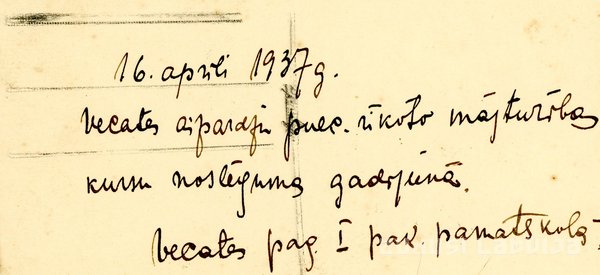 16. aprīlī 1937 g.
Vecates aizsardžu pulc. rīkoto mājturības
kursu noslēguma gadījumā.
Vecates pag. I pak. pamatskolā